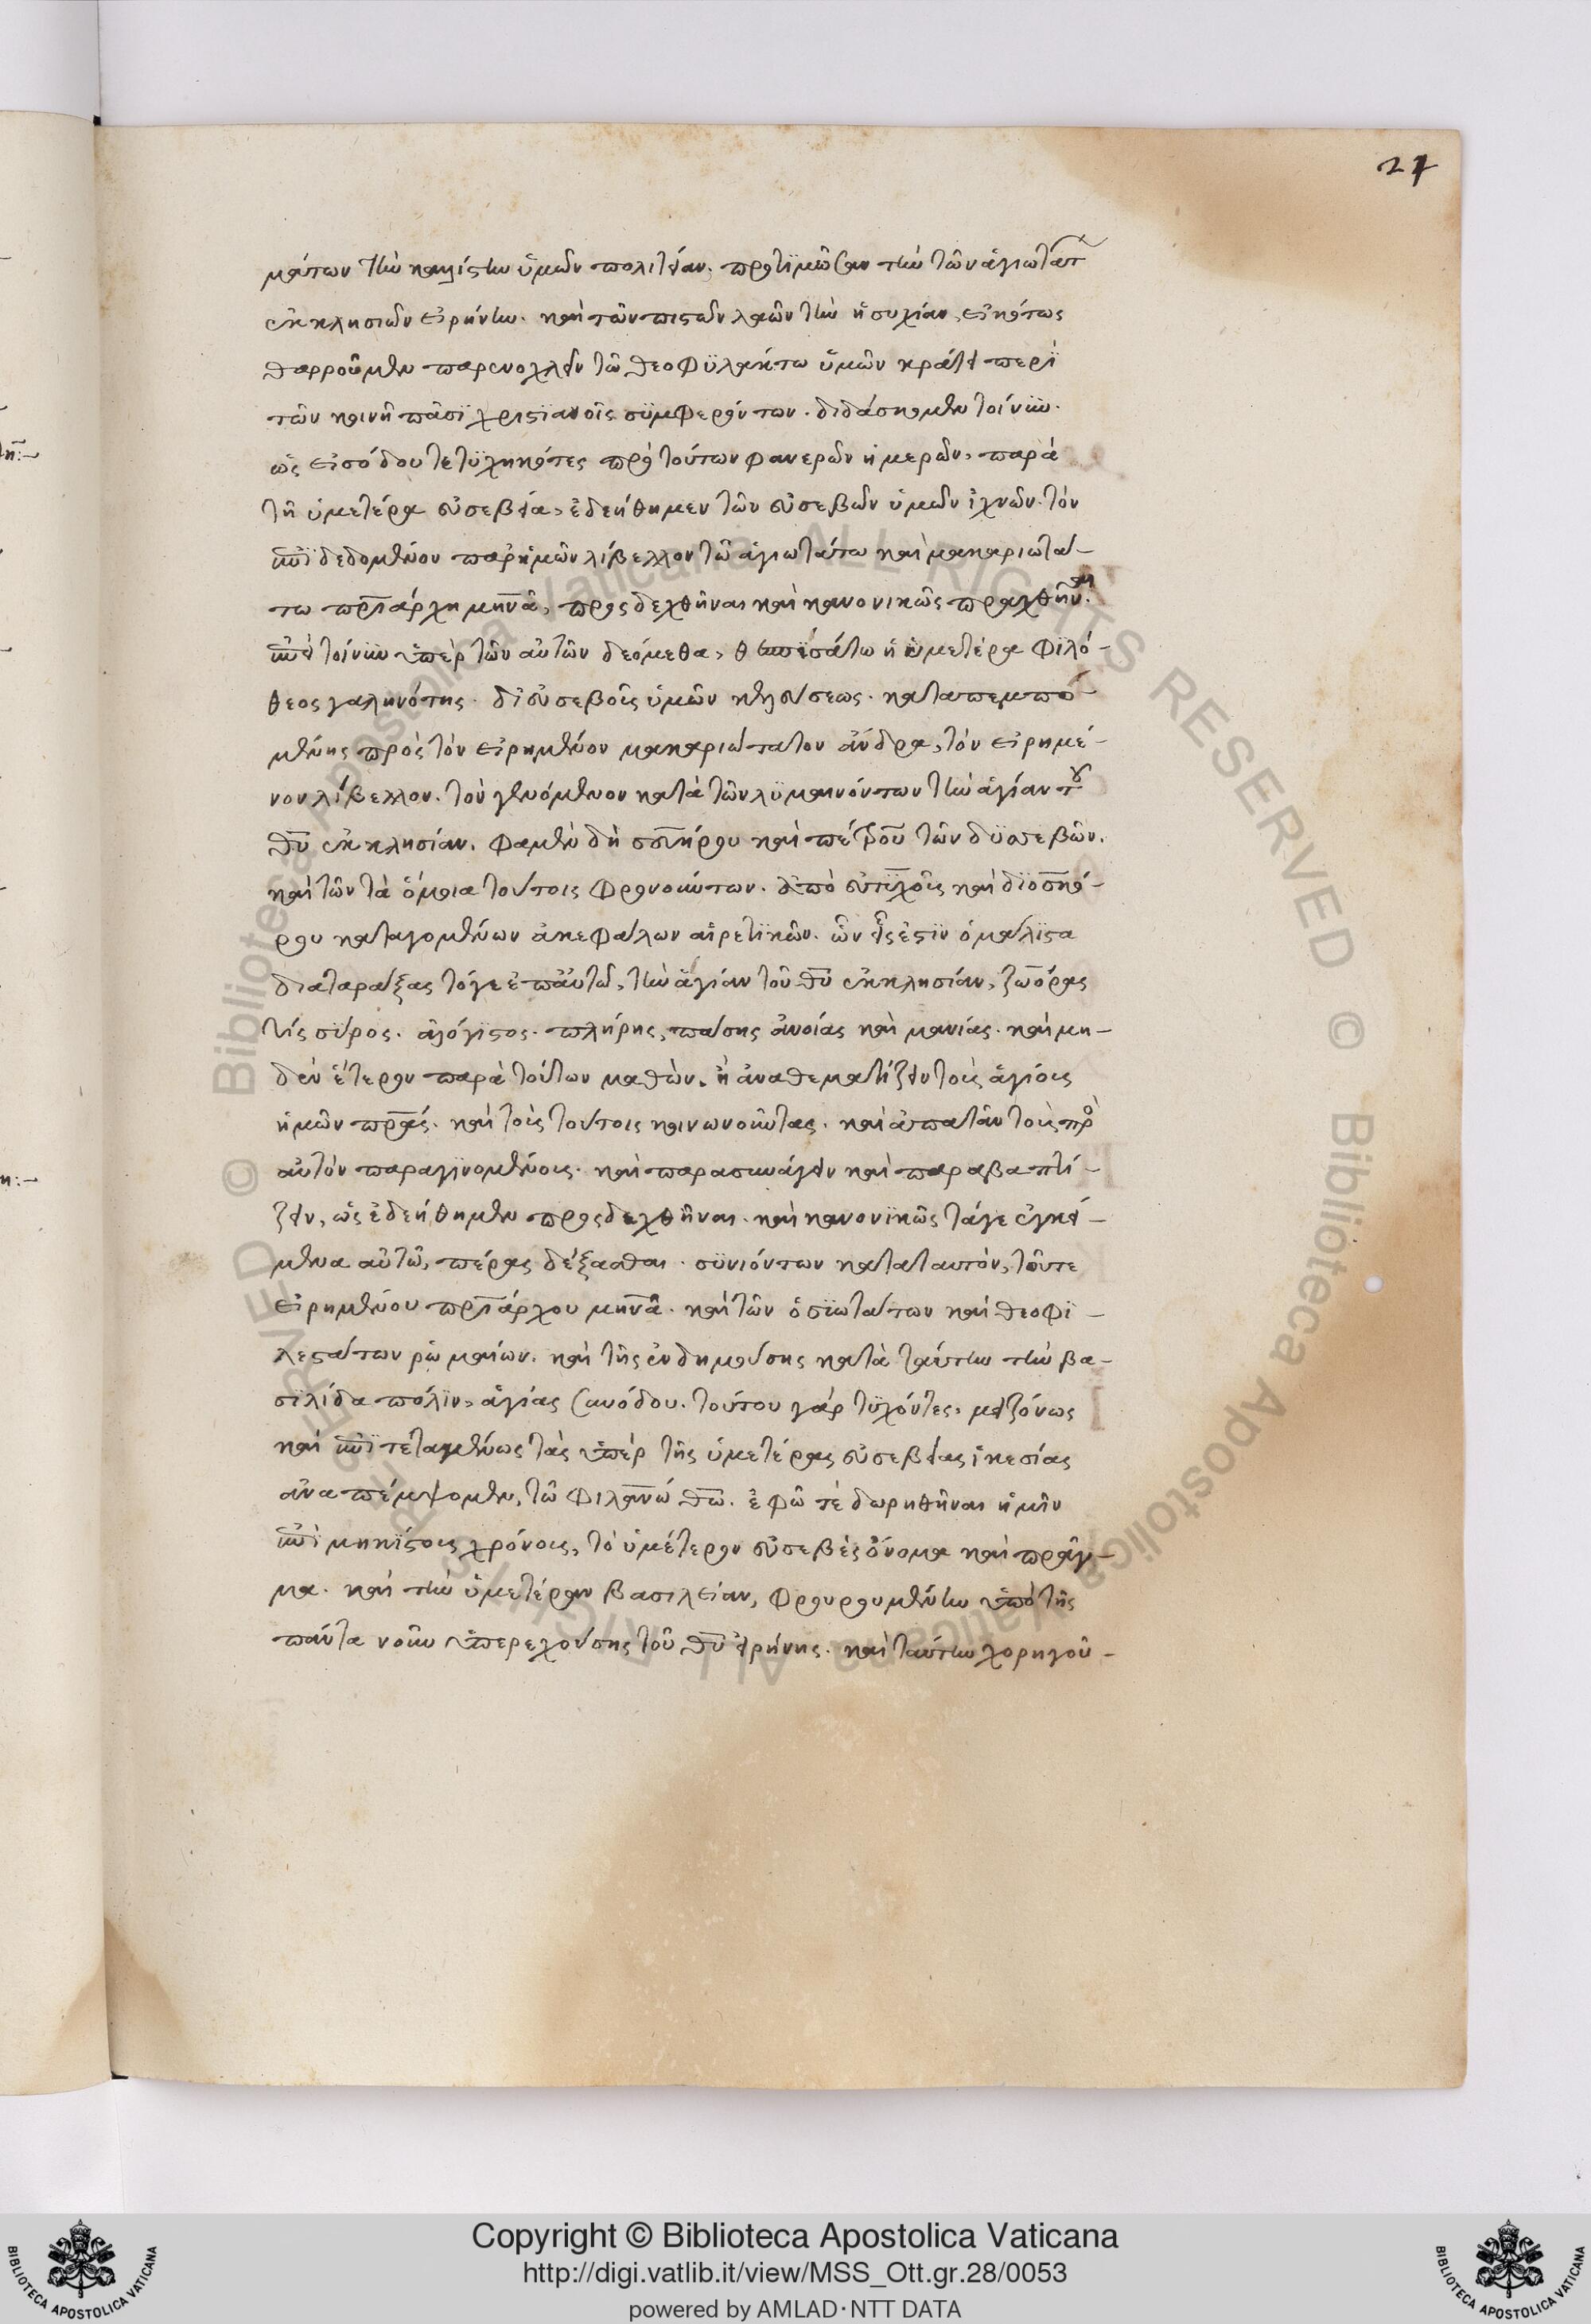 27
μάτων τὴν καλλίστην ὑμῶν πολιτείαν. προτϊμῶσαν τὴν τῶν ἁγιωτάτ
ἐκκλησιῶν εἰρήνην. καὶ τῶν πιστῶν λαῶν τὴν ἡσυχίαν, εἰκότως
θαρροῦμεν παρενοχλεῖν τῶ θεοφϋλάκτω ὑμῶν κράτει περὶ
τῶν κοινῆ πᾶσϊ χριστϊανοῖς σϋμφερόντων. διδάσκομεν τοίνϋν.
ὡς εἰσόδου τετϋχηκότες πρὸ τούτων φανερῶν ἡμερῶν, παρὰ
τῆ ὑμετέρα εὐσεβεία, ἐδεήθημεν τῶν εὐσεβῶν ὑμῶν ἰχνῶν. τὸν
ἐπϊδεδομένον παρ' ἡμῶν λίβελλον τῶ ἁγιωτάτω καὶ μακαριωτά-
τω πρϊάρχη μηνᾶ, προςδεχθῆναι καὶ κανονικῶς πραχθῆναι.
ἐπεὶ τοίνυν ὑπὲρ τῶν αὐτῶν δεόμεθα, θεσπϊσάτω ἡ ὑμετέρα φϊλό-
θεος γαληνότης. δι' εὐσεβοῦς ὑμῶν κελεύσεως. καταπεμπο-
μένης πρὸς τὸν εἰρημένον μακαριώτατον ἄνδρα, τὸν εἰρημέ-
νον λίβελλον. τὸν γενόμενον κατὰ τῶν λϋμαινόντων τὴν ἁγίαν τοῦ
θῦ ἐκκλησίαν. φαμὲν δὴ σευήρου καὶ πέτρου τῶν δϋσσεβῶν.
καὶ τῶν τὰ ὅμοια τούτοις φρονούντων. ἀπὸ εὐτϋχοῦς καὶ διοσκό-
ρου καταγομένων ἀκεφάλων αἱρετϊκῶν. ὧν εἷς ἐστϊν ὁ μάλϊστα
διαταράξας τόγε ἐπ' αὐτῶ, τὴν ἁγίαν τοῦ θῦ ἐκκλησίαν, ζωόρας
τίς σύρος. ἀλόγϊστος. πλήρης, πάσης ἀνοίας καὶ μανίας. καὶ μη-
δὲν ἕτερον παρὰ τούτων μαθὼν. ἢ ἀναθεματίζειν τοὺς ἁγίους
ἡμῶν πρας. καὶ τοὺς τούτοις κοινωνοῦντας. καὶ ἀπατᾶν τοὺς πρὸ
αὐτὸν παραγϊνομένους. καὶ παρασυνάγειν καὶ παραβαπτί-
ζειν, ὡς ἐδεήθημεν προςδεχθῆναι. καὶ κανονϊκῶς τάγε ἐγκεί-
μενα αὐτῶ, πέρας δέξασθαι. σϋνιόντων καταταυτὸν, τοῦτε
εἰρημένου πρϊάρχου μηνᾶ. καὶ τῶν ὁσϊωτάτων καὶ θεοφϊ-
λεστάτων ῥωμαίων. καὶ τῆς ἐνδημούσης κατὰ ταύτην τὴν βα-
σϊλίδα πόλϊν, ἁγίας συνόδου. τούτου γάρ τϋχόντες, μειζόνως
καὶ ἐπϊτεταμένως τὰς ὑπὲρ τῆς ὑμετέρας εὐσεβείας ἱκεσίας
ἀναπέμψομεν, τῶ φιλανῶ θῶ. ἐφ' ῶ τὲ δωρηθῆναι ἡμῖν
ἐπὶ μηκϊστοις χρόνοις, τὸ ὑμέτερον εὐσεβὲς ὄνομα καὶ πρᾶγ-
μα. καὶ τὴν ὑμετέραν βασιλείαν, φρουρουμένην ὑπὸ τῆς
πάντα νοῦν ὑπερεχούσης τοῦ θῦ εἰρήνης. καὶ ταύτην χορηγοῦ-
Copyright © Biblioteca Apostolica Vaticana
http://digi.vatlib.it/view/MSS_Ott.gr.28/0053
powered by AMLAD·NTT DATA